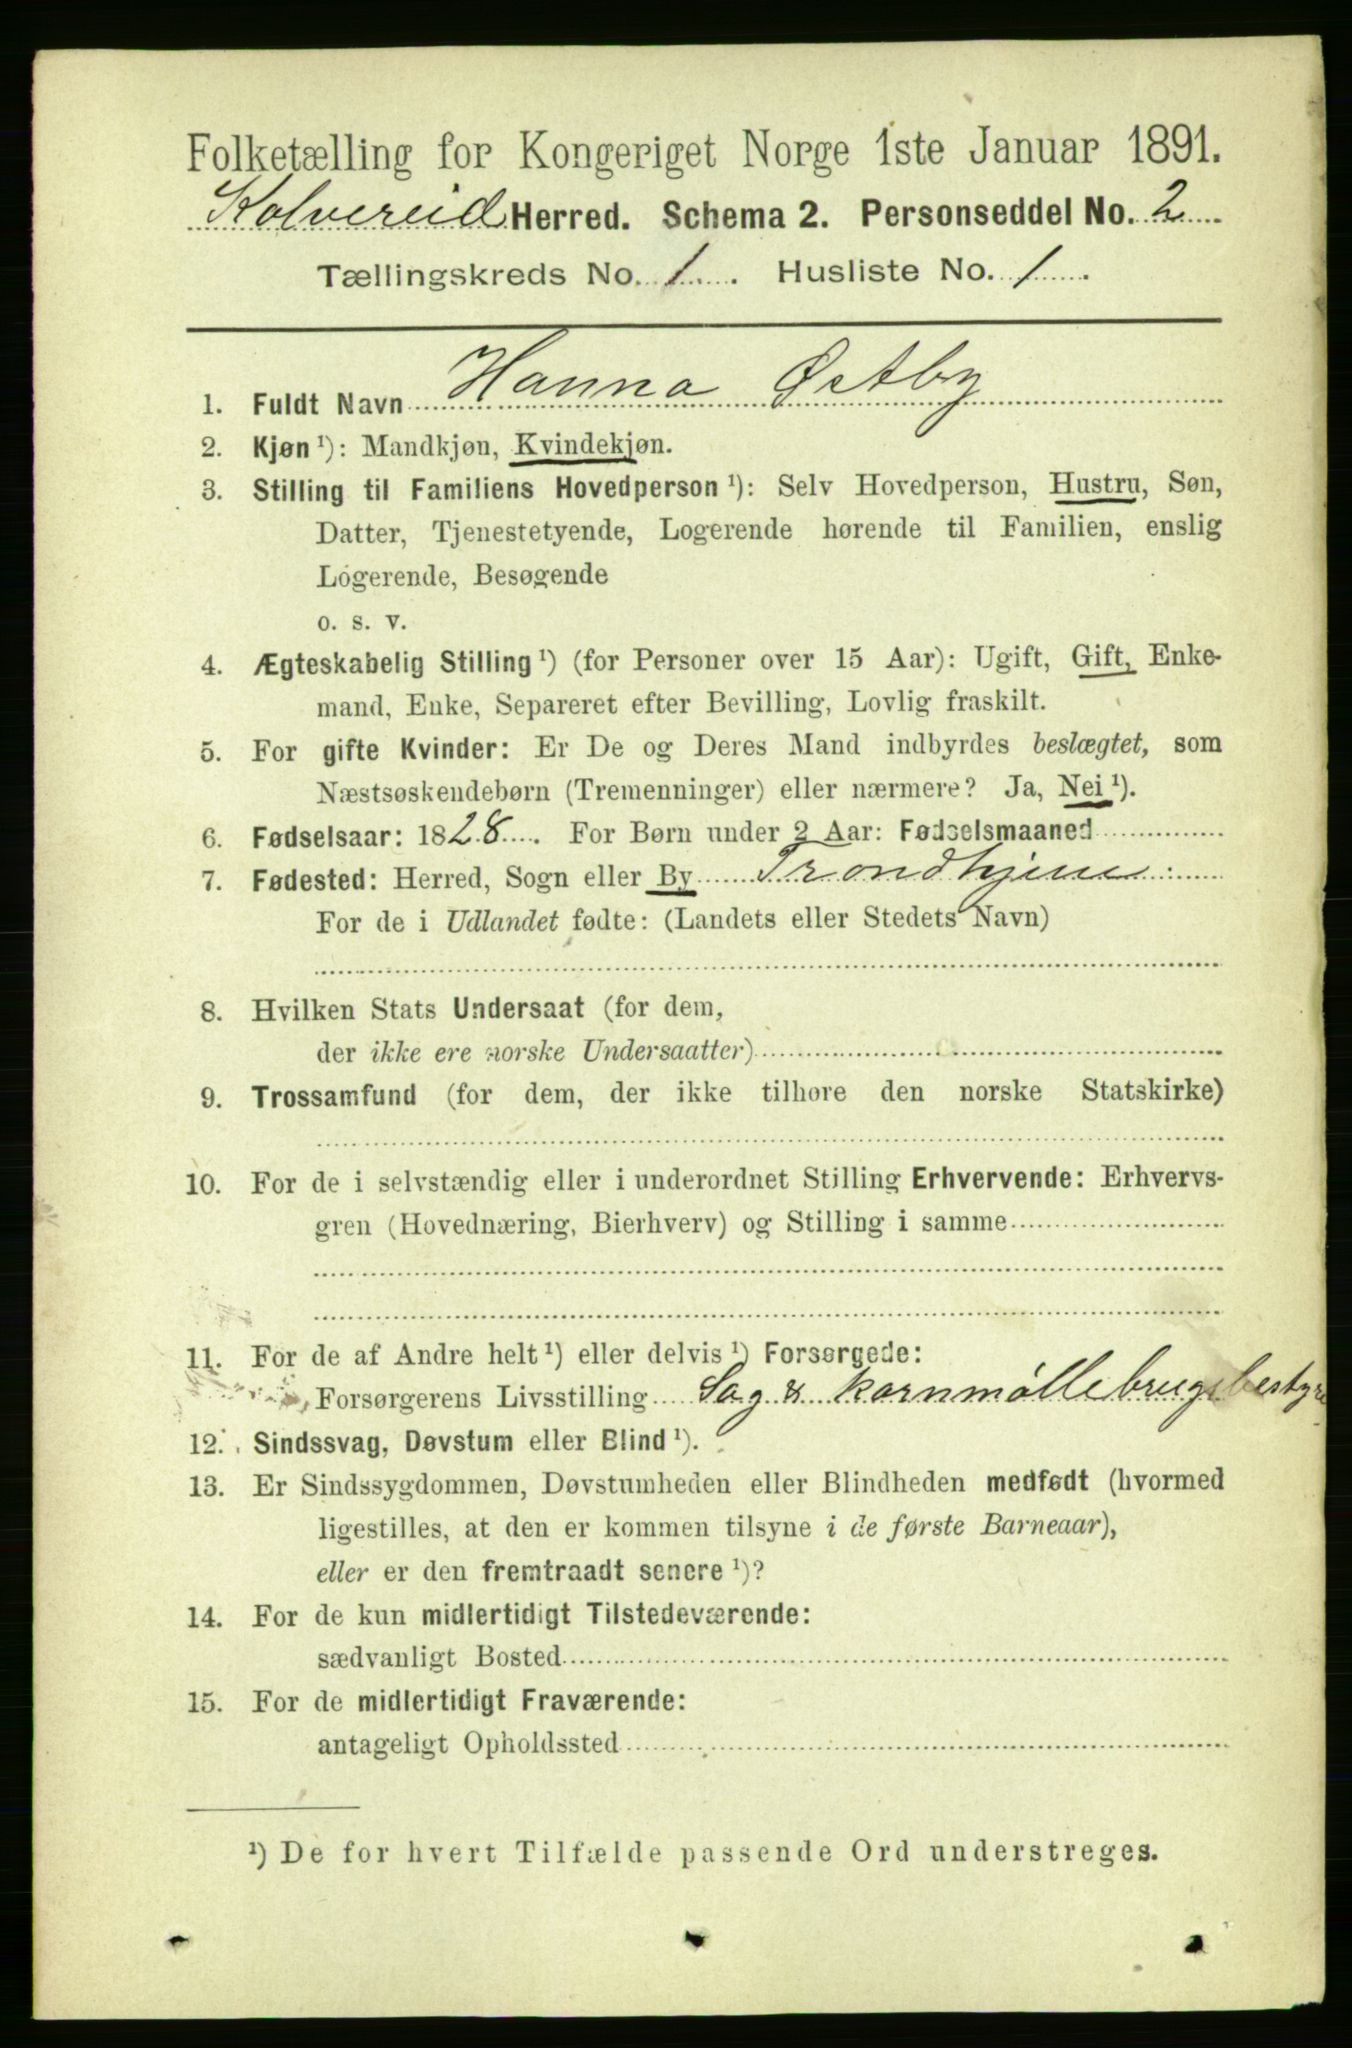 Folketælling for Kongeriget Norge 1ste Januar 1891.
Kolvereid Herred. Schema 2. Personseddel No. 2
Tællingskreds No. 1. Husliste No. 1
1. Fuldt Navn Hanna Østby
2. Kjøn ¹): Mandkjøn, Kvindekjøn.
3. Stilling til Familiens Hovedperson ¹): Selv Hovedperson, Hustru, Søn,
Datter, Tjenestetyende, Logerende hørende til Familien, enslig
Logerende, Besøgende
o. s. v.
4. Ægteskabelig Stilling ¹) (for Personer over 15 Aar): Ugift, Gift, Enke-
mand, Enke, Separeret efter Bevilling, Lovlig fraskilt.
5. For gifte Kvinder: Er De og Deres Mand indbyrdes beslægtet, som
Næstsøskendebørn (Tremenninger) eller nærmere? Ja, Nei ¹).
6. Fødselsaar: 1828. For Børn under 2 Aar: Fødselsmaaned
7. Fødested: Herred, Sogn eller By Trondhjem
For de i Udlandet fødte: (Landets eller Stedets Navn)
8. Hvilken Stats Undersaat (for dem,
der ikke ere norske Undersaatter)
9. Trossamfund (for dem, der ikke tilhøre den norske Statskirke)
10. For de i selvstændig eller i underordnet Stilling Erhvervende: Erhvervs-
gren (Hovednæring, Bierhverv) og Stilling i samme
11. For de af Andre helt ¹) eller delvis ¹) Forsørgede:
Forsørgerens Livsstilling Sag & kornmøllebrugsbestyre
12. Sindssvag, Døvstum eller Blind ¹).
13. Er Sindssygdommen, Døvstumheden eller Blindheden medfødt (hvormed
ligestilles, at den er kommen tilsyne i de første Barneaar),
eller er den fremtraadt senere ¹)?
14. For de kun midlertidigt Tilstedeværende:
sædvanligt Bosted
15. For de midlertidigt Fraværende:
antageligt Opholdssted
¹) De for hvert Tilfælde passende Ord understreges.